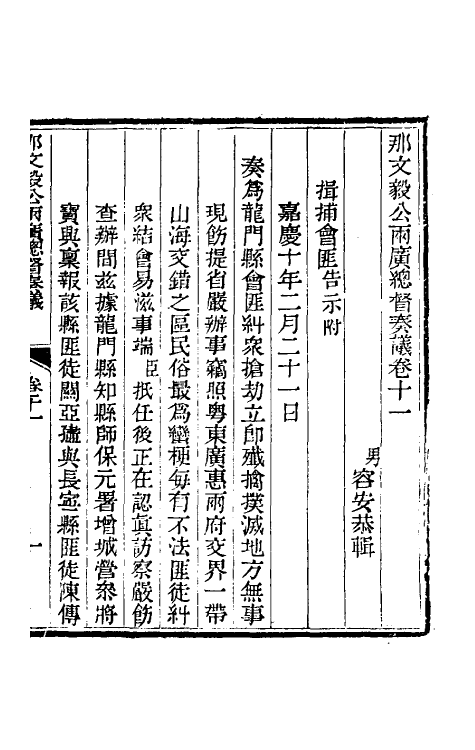 那文毅公兩廣總督奏議卷十一
男容安恭輯
揖捕會匪告示附
嘉慶十年二月二十一日
奏爲龍門縣會匪糾衆搶劫立卽殲擒撲滅地方無事
現飭提省嚴辦事竊照粵東廣惠兩府交界一帶
山海交錯之區民俗最爲蠻梗每有不法匪徒糾
衆結會易滋事端臣抵任後正在認眞訪察嚴飭
查辦間茲據龍門縣知縣師保元署增城營叅將
寶興稟報該縣匪徒關亞瓏與長寧縣匪徒陳傳
那文毅公兩廣總督奏議 卷十一 一